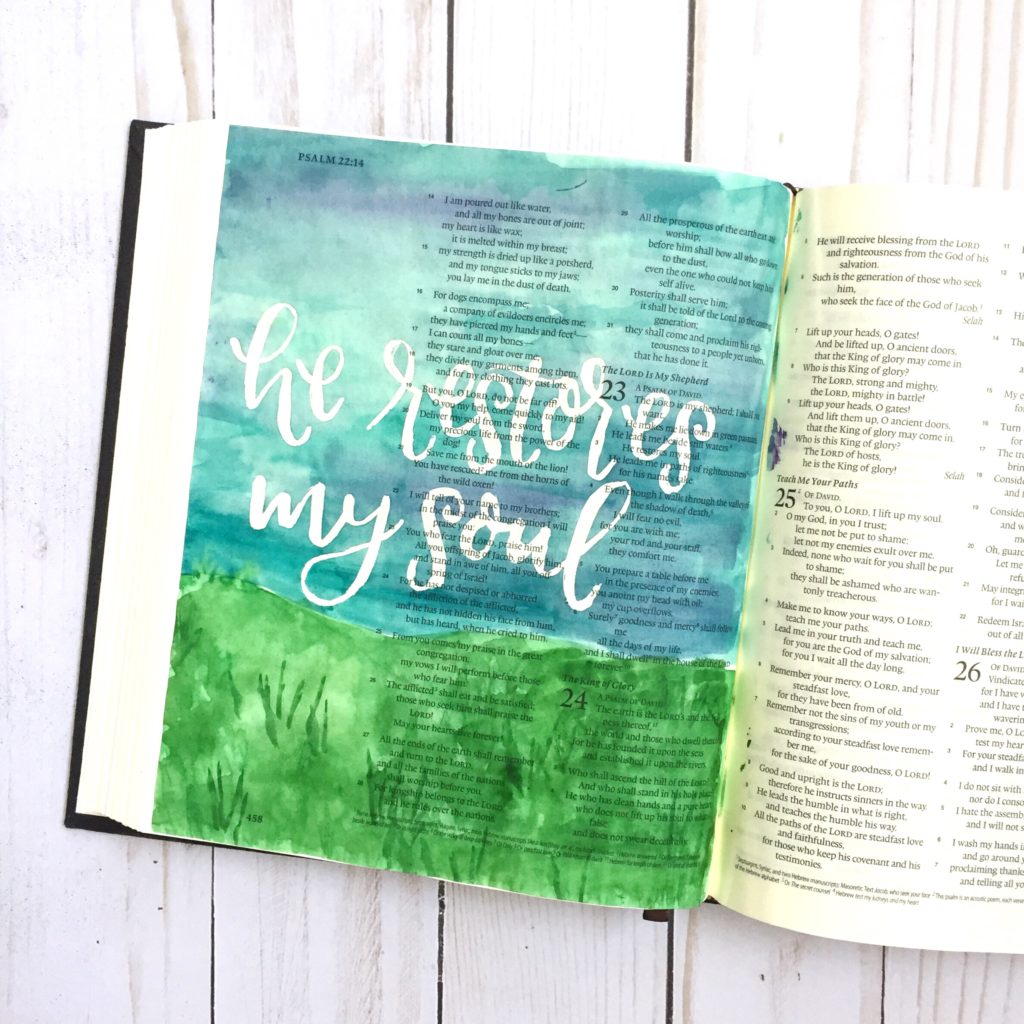 PSALM 22:14
he restores
my soul
14 I am poured out like water,
and all my bones are out of joint;
my heart is like wax;
it is melted within my breast;
15 my strength is dried up like a potsherd,
and my tongue sticks to my jaws;
you lay me in the dust of death.
16 For dogs encompass me;
a company of evildoers encircles me;
they have pierced my hands and feet
17 I can count all my bones—
they stare and gloat over me;
18 they divide my garments among them,
and for my clothing they cast lots.
19 But you, O LORD, do not be far off!
O you my help, come quickly to my aid!
20 Deliver my soul from the sword,
my precious life from the power of the
dog!
21 Save me from the mouth of the lion!
You have rescued me from the horns of
the wild oxen!
22 I will tell of your name to my brothers;
in the midst of the congregation I will
praise you:
23 You who fear the LORD, praise him!
All you offspring of Jacob, glorify him,
and stand in awe of him, all you off-
spring of Israel!
24 For he has not despised or abhorred
the affliction of the afflicted,
and he has not hidden his face from him,
but has heard, when he cried to him.
25 From you comes my praise in the great
congregation;
my vows I will perform before those
who fear him.
26 The afflicted shall eat and be satisfied;
those who seek him shall praise the
LORD!
May your hearts live forever!
27 All the ends of the earth shall remember
and turn to the LORD,
and all the families of the nations
shall worship before you.
28 For kingship belongs to the LORD,
and he rules over the nations.
458
29 All the prosperous of the earth eat and
worship;
before him shall bow all who go down
to the dust,
even the one who could not keep him-
self alive.
30 Posterity shall serve him;
it shall be told of the Lord to the coming
generation;
31 they shall come and proclaim his righ-
teousness to a people yet unborn,
that he has done it.
The LORD Is My Shepherd
23 A PSALM OF DAVID.
The LORD is my shepherd; I shall not
want.
He makes me lie down in green pastures.
He leads me beside still waters.
3 He restores my soul.
He leads me in paths of righteousness
for his name's sake.
4 Even though I walk through the valley of
the shadow of death,
I will fear no evil,
for you are with me;
your rod and your staff,
they comfort me.
5 You prepare a table before me
in the presence of my enemies;
you anoint my head with oil;
my cup overflows.
6 Surely goodness and mercy shall follow
me
all the days of my life,
and I shall dwell in the house of the LORD
forever.
The King of Glory
24 A PSALM OF DAVID.
The earth is the LORD's and the
ness thereof,
the world and those who dwell therein
for he has founded it upon the seas
and established it upon the rivers.
Who shall ascend the hill of the LORD?
And who shall stand in his holy place?
He who has clean hands and a pure heart,
who does not lift up his soul to what
false
and does not swear deceitfully.
5 He will receive blessing from the LORD
and righteousness from the God of his
salvation.
6 Such is the generation of those who seek
him,
who seek the face of the God of Jacob.
Selah
7 Lift up your heads, O gates!
And be lifted up, O ancient doors,
that the King of glory may come in.
8 Who is this King of glory?
The LORD, strong and mighty,
the LORD, mighty in battle!
9 Lift up your heads, O gates!
And lift them up, O ancient doors,
that the King of glory may come in.
Who is this King of glory?
The LORD of hosts,
he is the King of glory!
Selah
Teach Me Your Paths
25 OF DAVID.
To you, O LORD, I lift up my soul.
2 O my God, in you I trust;
let me not be put to shame;
let not my enemies exult over me.
3 Indeed, none who wait for you shall be put
to shame;
they shall be ashamed who are wan-
tonly treacherous.
4 Make me to know your ways, O LORD;
teach me your paths.
5 Lead me in your truth and teach me,
for you are the God of my salvation;
for you I wait all the day long.
6 Remember your mercy, O LORD, and your
steadfast love,
for they have been from of old.
7 Remember not the sins of my youth or my
transgressions;
according to your steadfast love remem-
ber me,
for the sake of your goodness, O LORD!
8 Good and upright is the LORD;
therefore he instructs sinners in the way.
9 He leads the humble in what is right,
and teaches the humble his way.
10 All the paths of the LORD are steadfast love
and faithfulness,
for those who keep his covenant and his
testimonies.
I Will Bless the L
26 OF DAVID
Vindicate
for I have
and I have
Prove me, O L
test my heart
3 For your steadf
and I walk in
4 I do not sit with
nor do I conso
5 I hate the assem
and I will not s
6 I wash my hands i
and go around y
7 proclaiming thanks
and telling all you